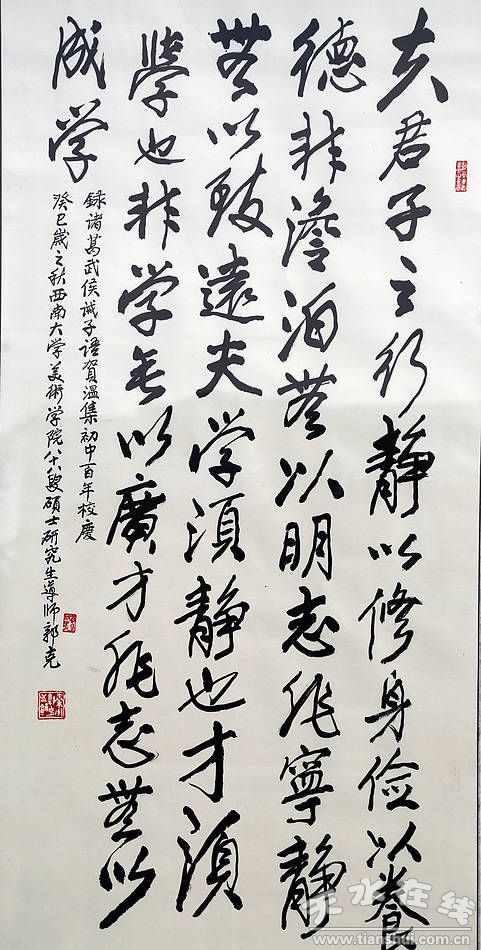 夫君子之行静以修身俭以養
德非澹泊無以明志非寧静
無以致遠夫学須静也才須
學也非学無以廣才非志無以
成学
録诸葛武侯诫子语贺温集初中百年校慶
癸巳歲之秋西南大学美術学院八十八叟碩士研究生導師郭克
天水在线
www.tianshui.com.cn